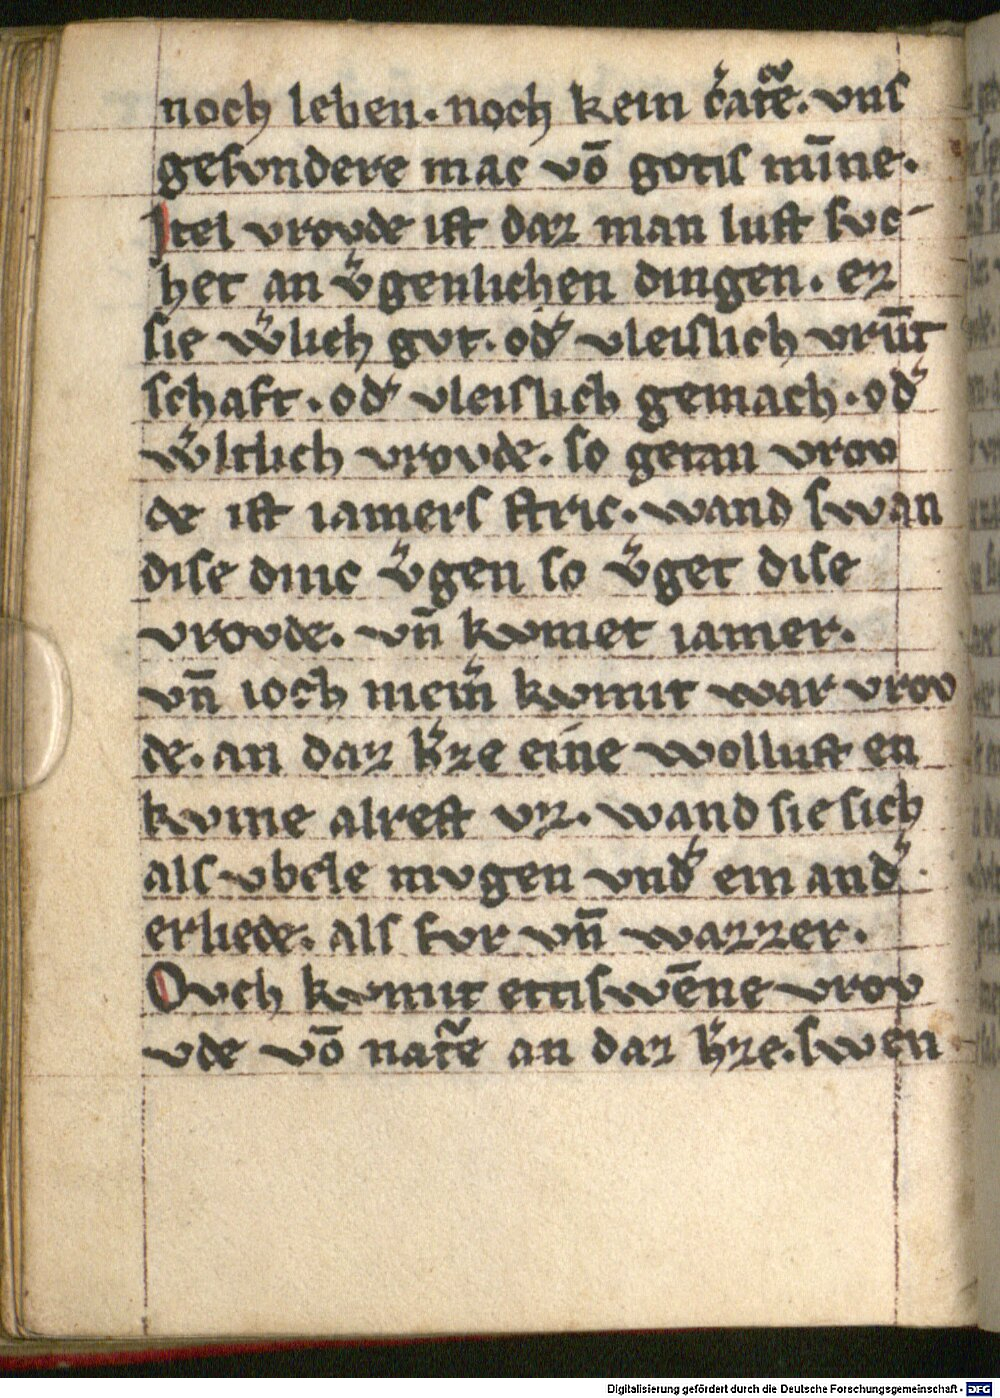 noch leben. noch kein c̄atẽ. vns
gesvndere mac vō gotis mīne.
Itel vrovde ist daz man lust svc-
het an v̾genlichen dingen. ez
sie w̾lich gvt. od̾ vleislich vrūt
schaft. od̾ vleislich gemach. od̾
w̾ltlich vrovde. so getan vrov
de ist iamers stric. wand swan
dise dinc v̾gen so v̾get dise
vrovde. vn̄ kvmet iamer.
vn̄ ioch niem̾ kvmit war vrov
de. an daz h̾ze eine wollust en
kvme alrest vz. wand sie sich
als vbele mvgen vnd̾ ein and̾
erliede. als fvr vn̄ wazzer.
Ovch kvmit ettiswēne vrov
vde vō natẽ an daz h̾ze. swen
Digitalisierung gefördert durch die Deutsche Forschungsgemeinschaft - DFG